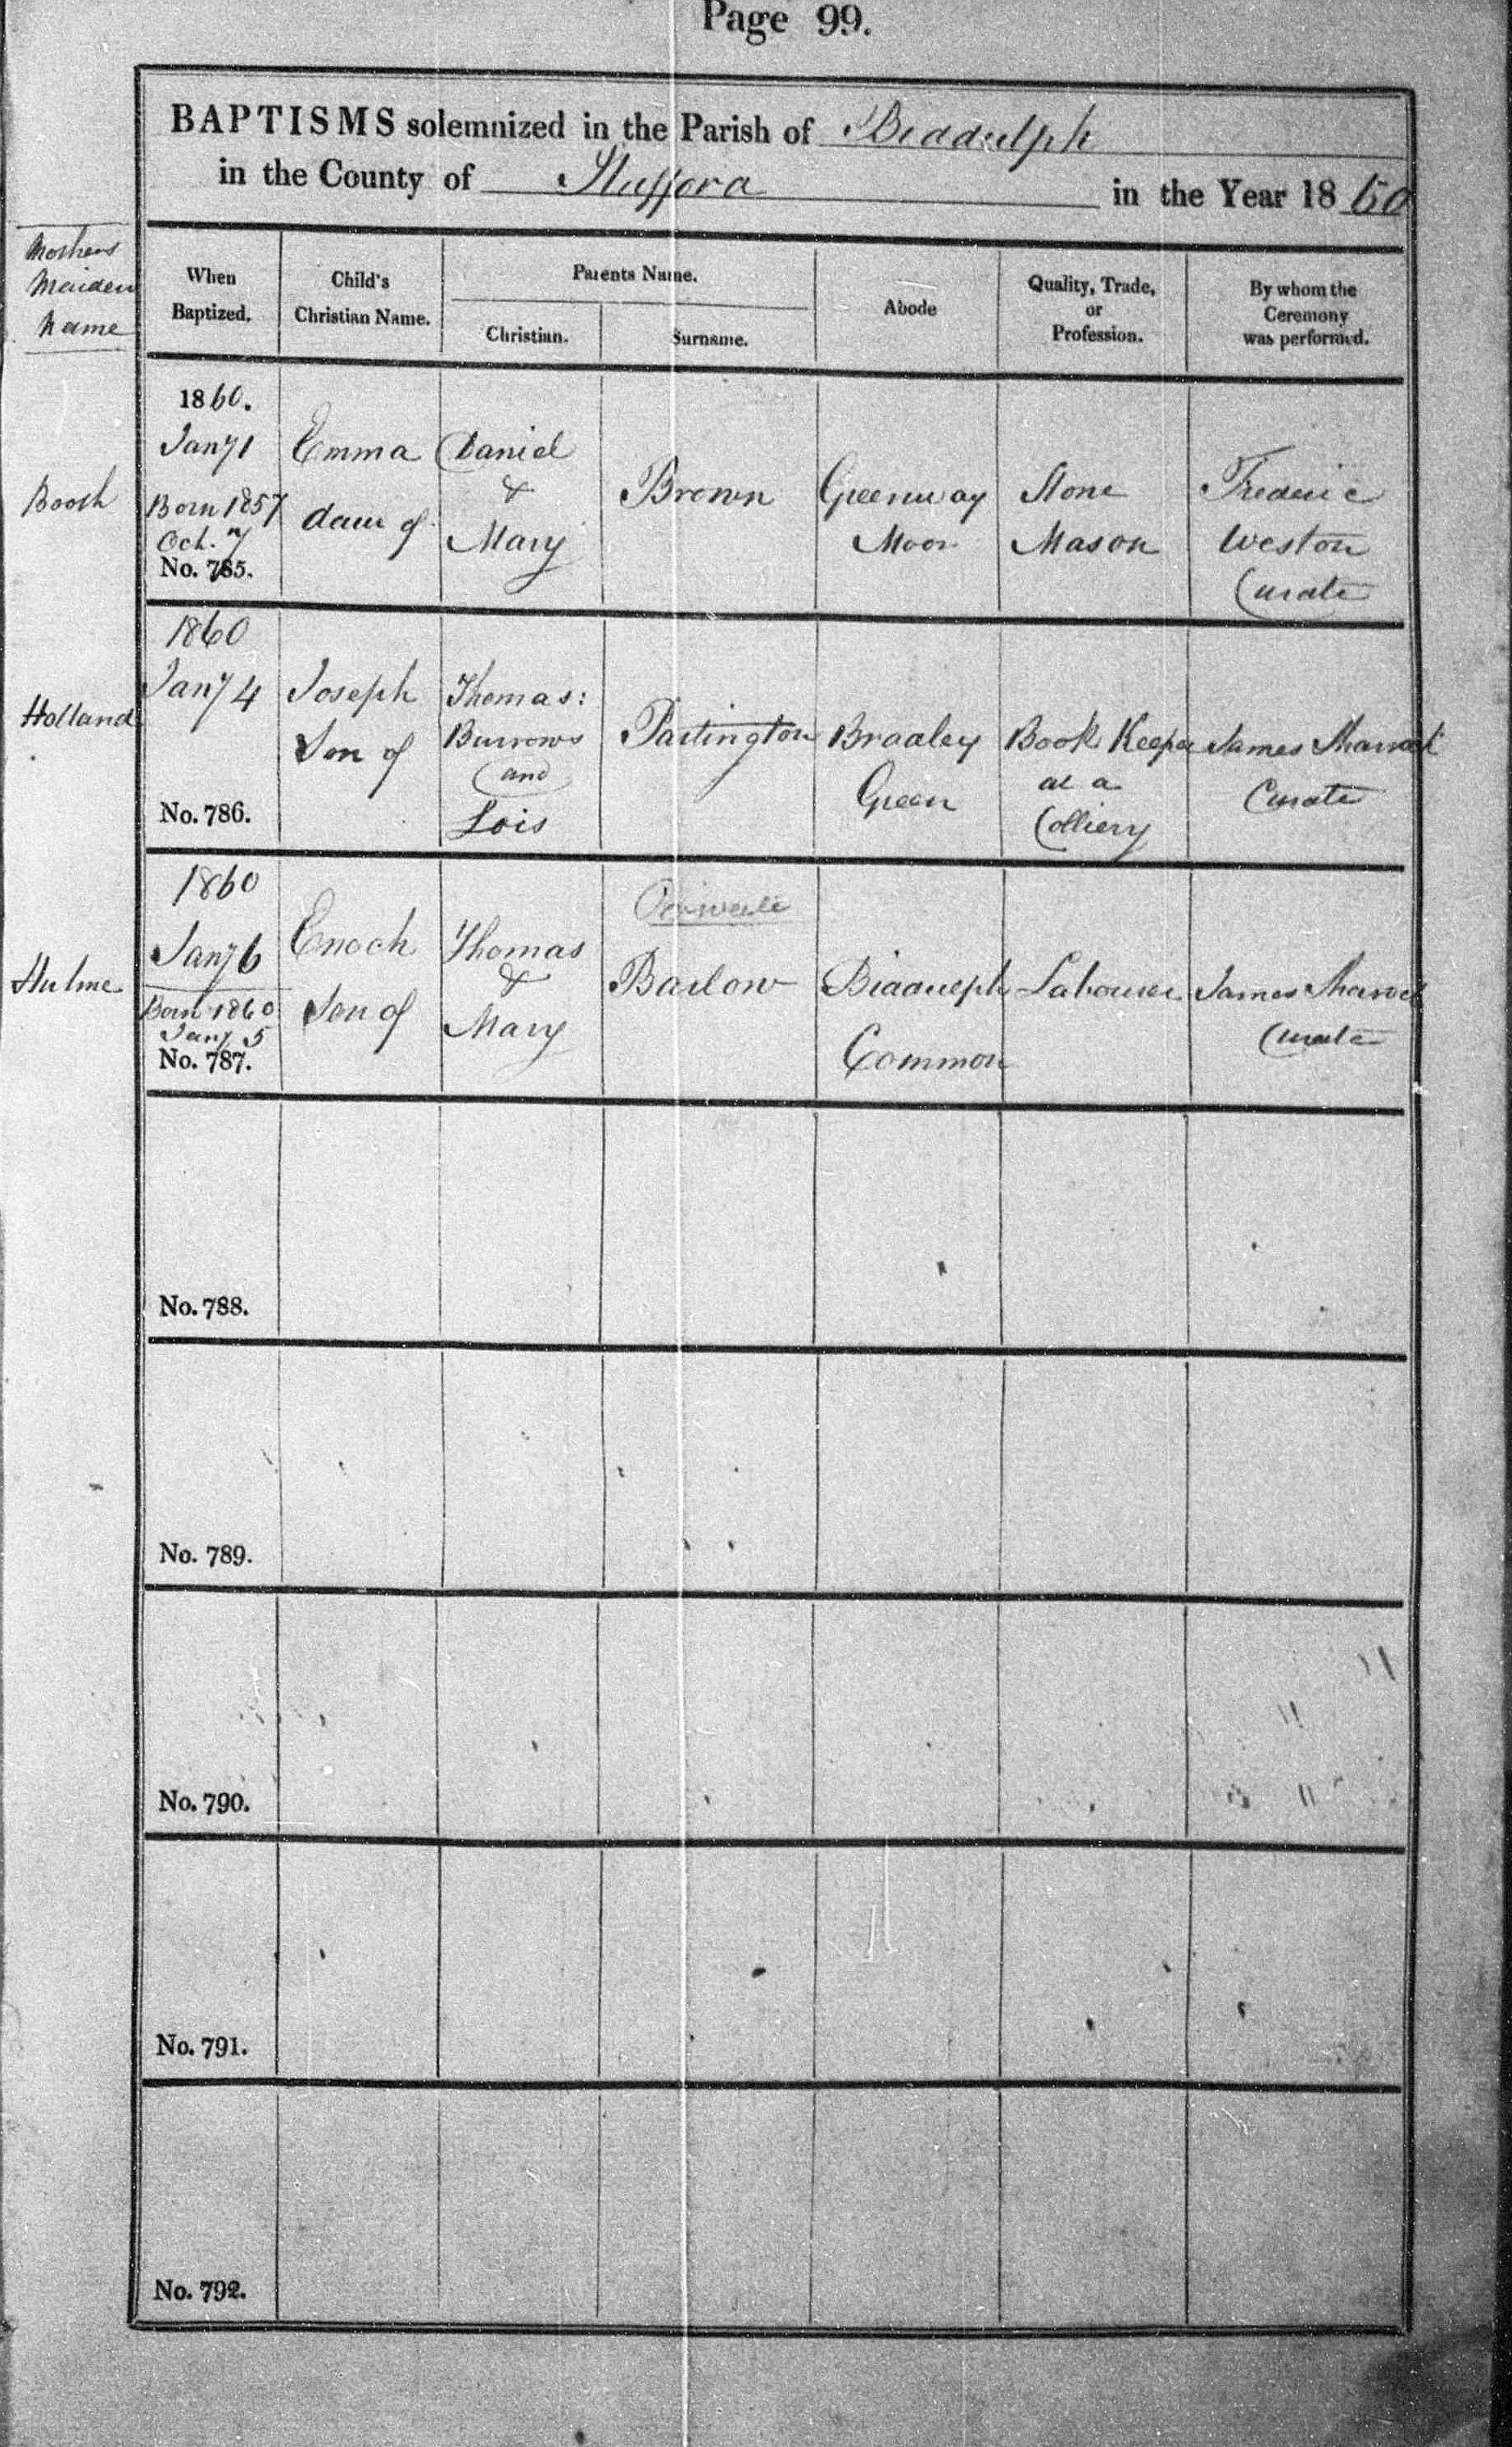 Page 99.
BAPTISMS solemnized in the Parish of Biddulph
in the County of Stafford in the Year 1860
Mothers
Maiden
Name
When
Baptized.
Child's
Christian Name.
Parents Name.
Christian.
Surname.
Abode
Quality, Trade,
or
Profession.
By whom the
Ceremony
was performed.
Booth
1860.
Jany 1
Born 1857
Oct. 7
No. 785.
Emma
daur of
Daniel
&
Mary
Brown
Greenway
Moor
Stone
Mason
Frederic
Weston
Curate
Holland
1860
Jany 4
No. 786.
Joseph
Son of
Thomas:
Burrows
and
Lois
Partington
Bradley
Green
Book Keeper
at a
Colliery
James
Curate
Hulme
1860
Jany 6
Born 1860
Jany 5
No. 787.
Enoch
Son of
Thomas
&
Mary
Private
Barlow
Biddulph
Common
Labourer
James
Curate
No. 788.
No. 789.
No. 790.
No. 791.
No. 792.